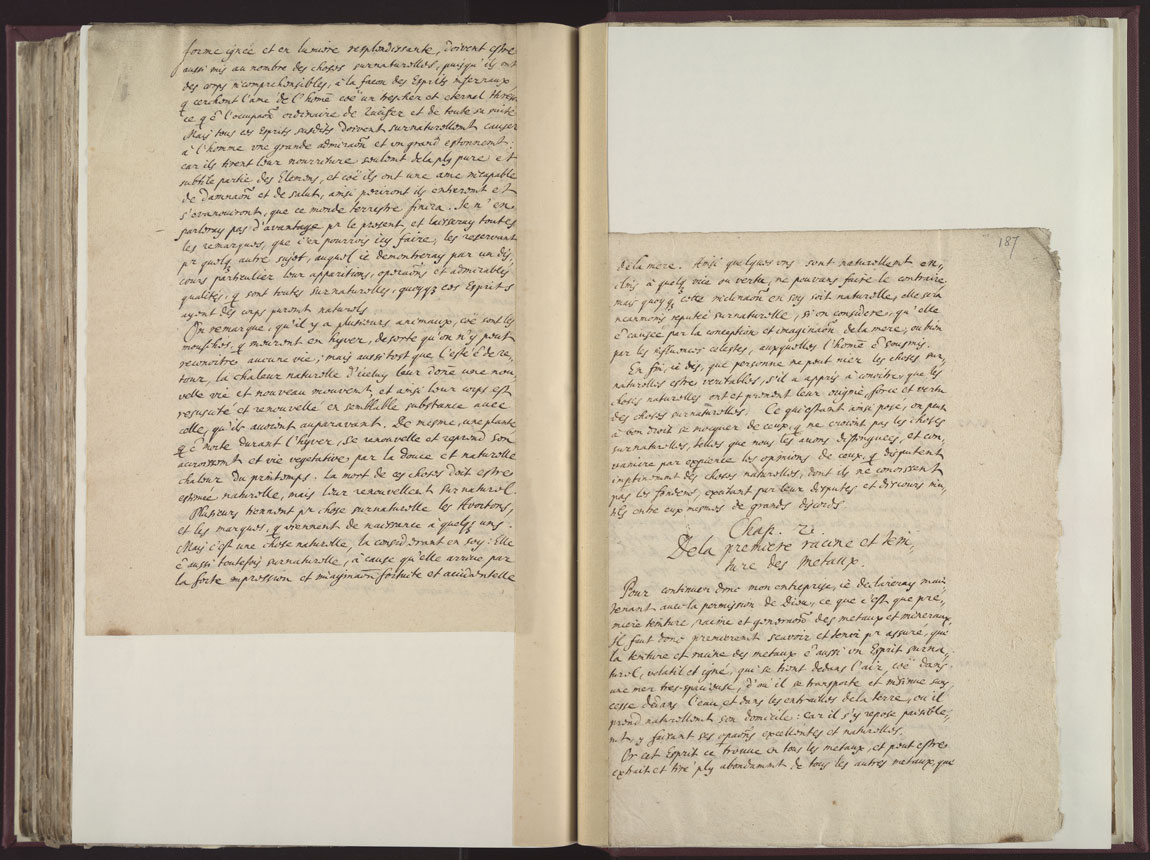 forme ignée et en lumiere resplondissante, doivent estre
aussi mis au nombre des choses surnaturolles, puisqu'ils ont
des corps incomprehonsibles, à la facon des Esprits infernaux,
q cerchont l'ame de l'home coe un tres cher et eternal thresor
ce q ẽ l'occupaon ordinaire de Lucifer et de toute sa suite
Mais tous ces Esprits susdits doivent surnaturollemt causer
à l'homme vne grande admiraon et un grand estonnemt:
car ils tirent lour nourriture soulemt de la ply pure et
subtile partie des Elemens, et coe ils ont une ame incapable
de damnaon et de salut, ainsi pouriront ils entieremt et
s'evanouiront, que ce monde terrestre finira. Je n'en
parloray pas d'avantage pr le present, et laisseray toutes
les remarques, que i'en pourrois icy faire, les reservant
pr quelq autre sujet, auquol ie demontreray par un dis,
cours particulier leur apparitions, operaons et admirables
qualites, q sont toutes surnaturolles, quoyq ces Esprits
ayent des corps paront naturols
On remarque, qu'il y a plusieurs animaux, coe sont les
mousches, q mouront en hyver, de sorte qu'on n'y pout
reconoitre aucune vie; mais aussi tost que l'esté ẽ de re,
tour, la chaleur naturolle d'iceluy leur done une nou
velle vie et nouveau mouvemt et ainsi lour corps est
resuscité et renouvelle en semblable substance avec
celle, qu'ils avoront auparavant. De mesme, une plante
q ẽ morte durant l'hyver, se renouvelle et reprend son
accroissemt et vie vegetative par la douce et naturolle
chalour du printomps. la mort de ces choses doit estre
estimée naturolle, mais lour renouvellemt surnaturol.
Plusieurs tiennont pr chose surnaturolle les Avortons,
et les marques, q viennent de naissance à quelqs uns.
Mais c'est une chose naturolle, la considerant en soy: Elle
ẽ aussi toutefois surnaturolle, à cause qu'elle arrive par
la forte impression et imaginaon fortuite et accidantelle
187
de la mere. Ainsi quelques uns sont naturollemt en,
clins à quelq vice ou vertu, ne pouvans faire le contraire,
mais quoyq cette inclinaon en soy soit naturolle, elle sera
neanmoins reputeé surnaturolle, si on considere, qu'elle
ẽ causée par la conception et imaginaon de la mere, ou bien
par les influences celestes, auxquolles l'home ẽ sousmis.
En fin, ie dis, que personne ne pout nier les choses sur
naturolles estre veritables, s'il a appris à conoitre, que les
choses naturolles ont et pronont leur origine, force et vertu
des choses surnaturolles. Ce qu'estant ainsi posé, on put
à bon droit se mocquer de ceux, q ne croiont pas les choses
surnaturolles, telles que nous les avons distinguees, et con,
vaincre par expience les opinions de ceux, q disputent
impudenmt des choses naturolles, dont ils ne conoissent
pas les fondems, excitant par leur disputes et discours inu,
tils entre eux mesmes de grands discords
Chap. 2.
De la premiere racine et tein,
ture des metaux.
Pour continuer donc mon entreprise, ie declareray main
tenant avec la permission de Dieu, ce que c'est que pre,
miere teinture, racine et generaon des metaux et mineraux,
Il faut donc premieremt scavoir et tenir pr assuré, que
la teinture et racine des metaux ẽ aussi un Esprit surna,
turol, volatil et igné, qui se tient dedans l'air, coe dans
une mer tres-spacieuse, d'où il se transporte et insinue sans
cesse dedans l'eau, et dans les entrailles de la terre, où il
prend naturollemt son domicile: car il s'y repose paisible,
mt, y faisant ses opaons excellentes et naturolles.
Or cet Esprit ce trouve en tous les metaux, et pout estre
extrait et tiré ply abondammt de tous les autres metaux, que